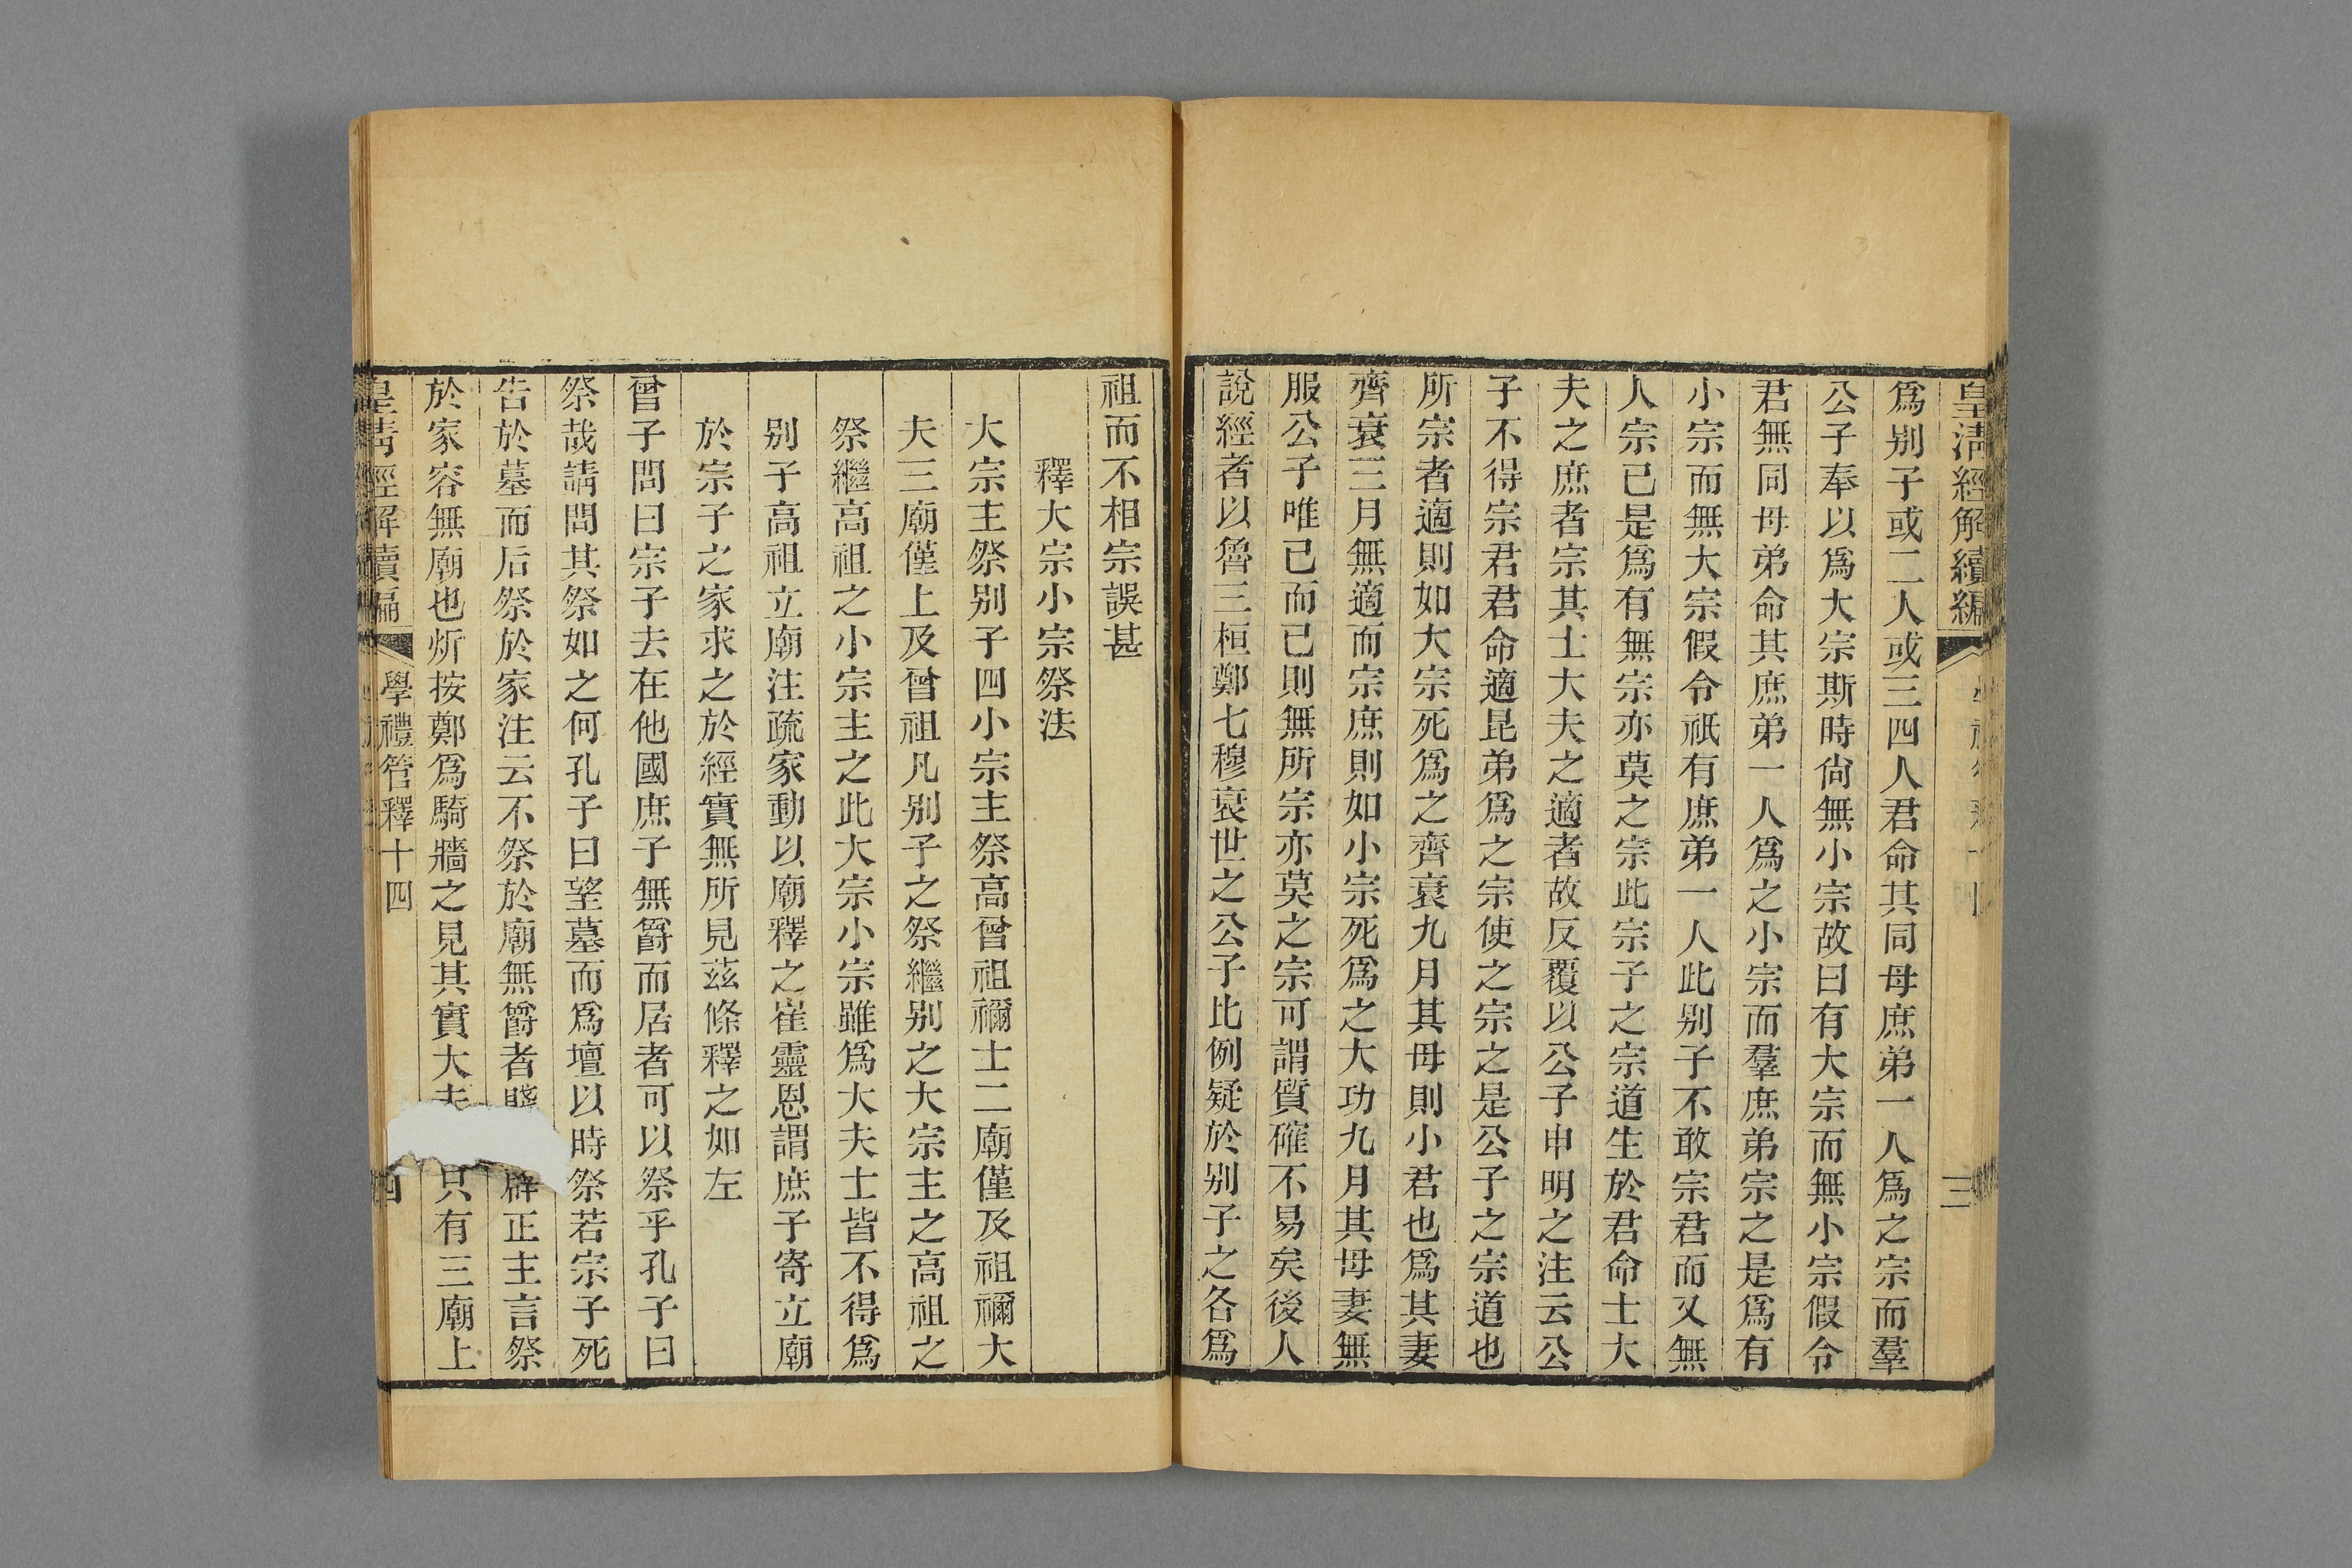 皇淸經解續編
三
爲别子或二人或三四人君命其同母庶弟一人爲之宗而羣
公子奉以爲大宗斯時尙無小宗故曰有大宗而無小宗假令
君無同母弟命其庶弟一人爲之小宗而羣庶弟宗之是爲有
小宗而無大宗假令祇有庶弟一人此别子不敢宗君而又無
人宗已是爲有無宗亦莫之宗此宗子之宗道生於君命士大
夫之庶者宗其士大夫之適者故反覆以公子申明之注云公
子不得宗君君命適昆弟爲之宗使之宗之是公子之宗道也
所宗者適則如大宗死爲之齊衰九月其母則小君也爲其妻
齊衰三月無適而宗庶則如小宗死爲之大功九月其母妻無
服公子唯已而已則無所宗亦莫之宗可謂質確不易矣後人
說經者以魯三桓鄭七穆衰世之公子比例疑於别子之各爲
祖而不相宗誤甚
釋大宗小宗祭法
大宗主祭别子四小宗主祭高曾祖禰士二廟僅及祖禰大
夫三廟僅上及曾祖凡别子之祭繼别之大宗主之高祖之
祭繼高祖之小宗主之此大宗小宗雖爲大夫士皆不得爲
别子高祖立廟注疏家動以廟釋之崔靈恩謂庶子寄立廟
於宗子之家求之於經實無所見茲條釋之如左
曾子問曰宗子去在他國庶子無爵而居者可以祭乎孔子曰
祭哉請問其祭如之何孔子曰望墓而爲壇以時祭若宗子死
告於墓而后祭於家注云不祭於廟無爵者賤辟正主言祭
於家容無廟也炘按鄭爲騎牆之見其實大夫只有三廟上
皇淸經解續編
學禮管釋十四
四